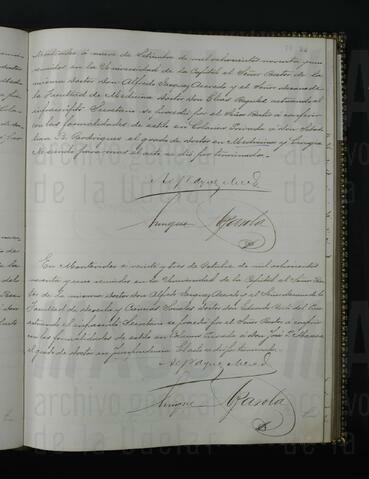 Montevideo á nueve de Setiembre de mil ochocientos noventa y uno
reunidos en la Universidad de la Capital el Señor Rector de la
misma doctor don Alfredo Vasquez Acevedo y el Señor decano de
la Facultad de Medicina doctor don Elias Regules actuando el
infrascripto Secretario se procedió por el Señor Rector á conferir
con las formalidades de estilo en Colacion Privada á don
B. Rodriguez el grado de doctor en Medicina y Cirugia
el acto se dió por terminado.
Enrique Azarola
En Montevideo á veinte y tres de Octubre de mil ochocientos
noventa y uno reunidos en la Universidad de la Capital el Señor Rec-
tor de la misma doctor don Alfredo Vasquez Acevedo y el Señor decano de la
Facultad de derecho y Ciencias Sociales doctor don Eduardo Brito del Pino
actuando el infrascripto Secretario se procedió por el Señor Rector á conferir
con las formalidades de estilo en Colacion Privada á don José
el grado de doctor en Jurisprudencia El acto se dió por terminado
Enrique Azarola
archivo general
de la Udelar